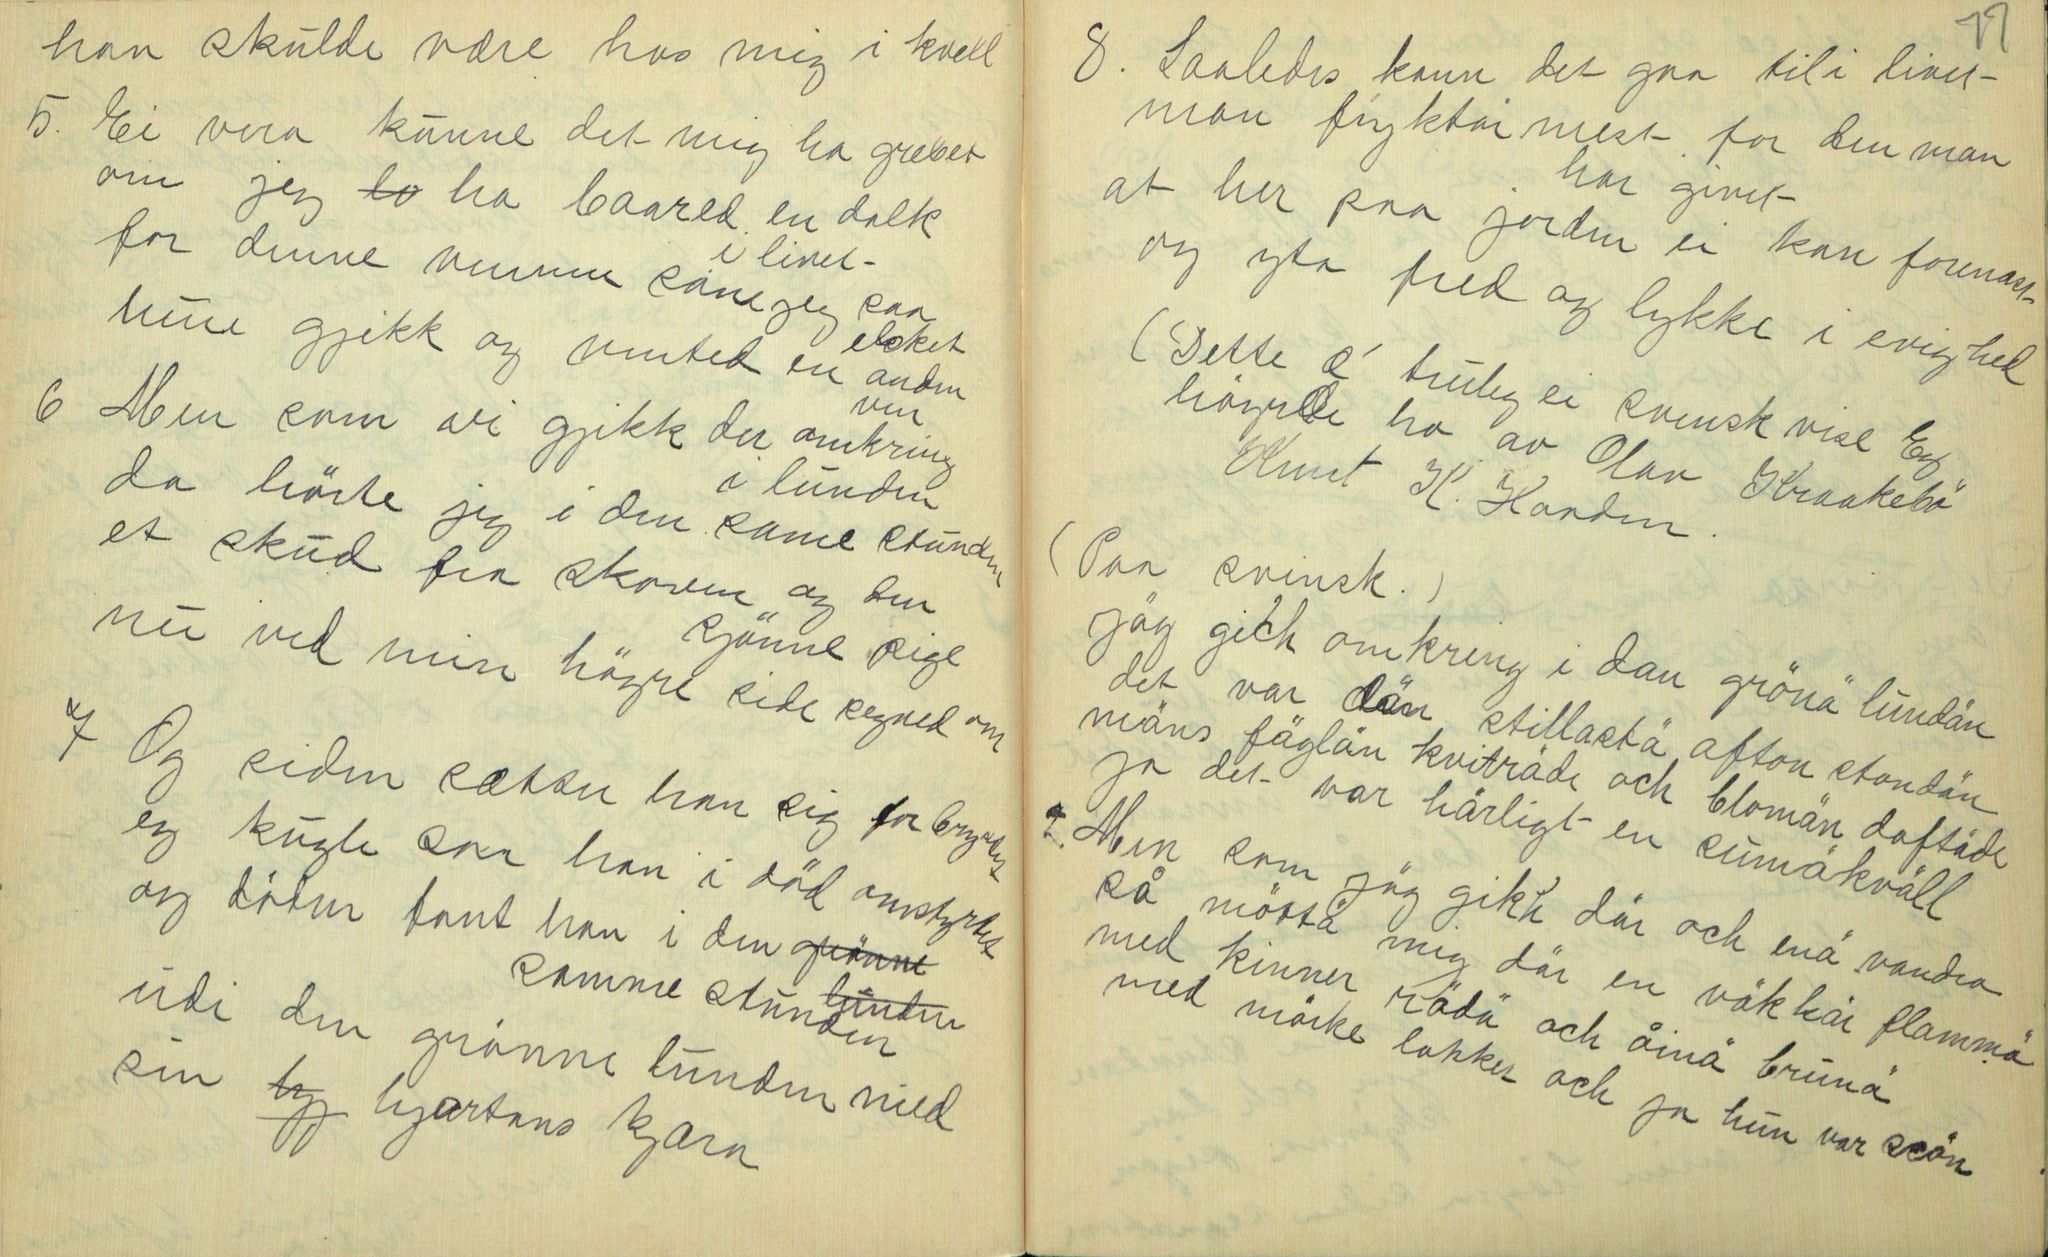 han skulde være hos mig i kvell
5. Ei vera kunne det mig ha grebet
om jeg ha baared en dolk
i livet
for denne vennen som jeg saa
elsket
hun gjikk og vented en anden
ven
6 Men som vi gjikk der omkring
i lunden
da hörte jeg i den same stunden
et skud fra skoven og den
sjönne pige
nu ved min högre side segned om
7 Og siden sætter han sig for brystet
eg kugle saa han i död omstyrtet
og döden fant han i den grönne
lunden
samme stunden
udi den grönne lunden med
sin hjartans kjæra
77
8. Saaledes kann det gaa til i livet
man fryktar mest for den man
har givet
at her paa jorden ei kan forenast
og yta fred og lykke i evighed
(Dette é truleg ei svensk vise Eg
högrde ha av Olav Kraakebö
Knut K. Hovden.
(Paa svensk.)
jäg gich omkring i dan grönä lundän
det var dän stillastä afton stondän
mäns fäglän kviträde och blomän doftäde
ja det var härligt en sumäkväll
2. Men som jäg gikk där och enä vandra
så möttä mig där en väkkär flammä
med kinner rödä och åinä brunä
med mörke lokker och ja hun var scön